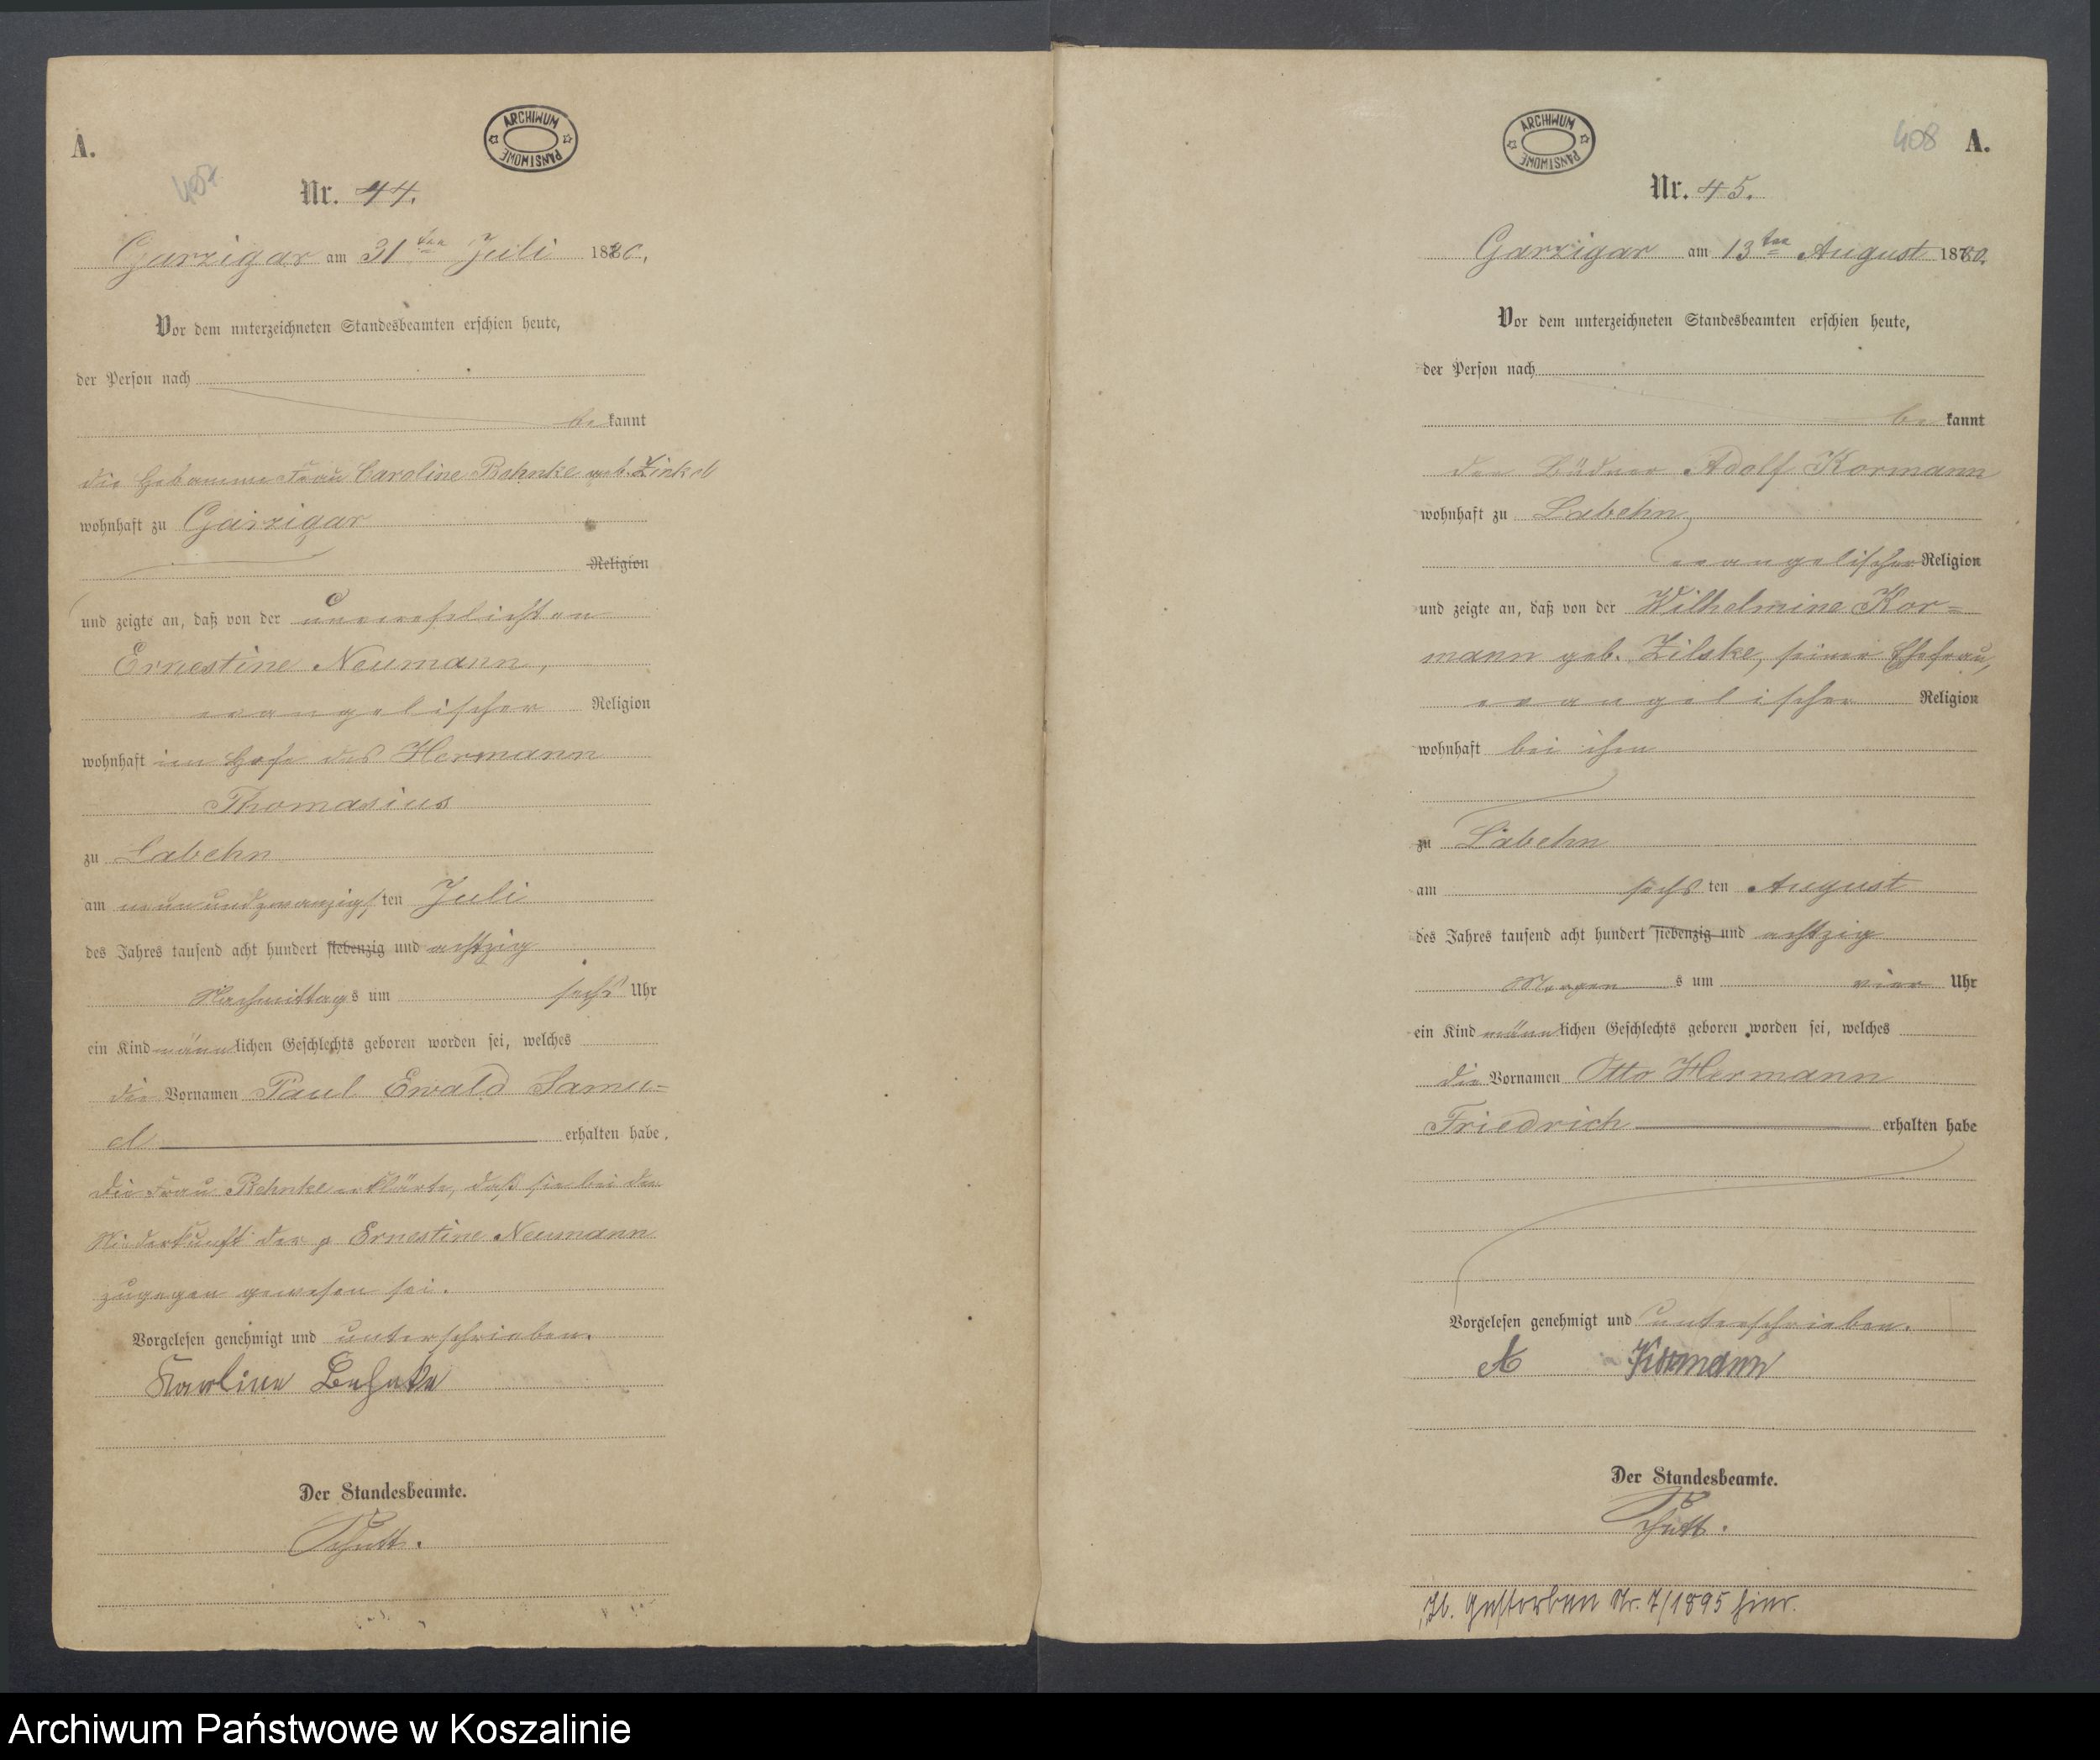 A.
ARCHIWUM PAŃSTWOWE
407
Nr. 44.
Garzigar am 31ten Juli 1880.
Vor dem unterzeichneten Standesbeamten erschien heute,
der Person nach
bekannt
die Hebamme Frau Caroline Behnke geb. Zinkel
wohnhaft zu Garzigar
Religion
und zeigte an, daß von der unverehelichten
Ernestine Neumann,
evangelischer Religion
wohnhaft im Hofe des Hermann
Thomasius
zu Labehn
am neunundzwanzigsten Juli
des Jahres tausend acht hundert siebenzig und achtzig
Nachmittags um sechs Uhr
ein Kind männlichen Geschlechts geboren worden sei, welches
die Vornamen Paul Ewald Samu=
el erhalten habe.
Die Frau Behnke erklärte, daß sie bei der
Niederkunft der p Ernestine Neumann
zugegen gewesen sei.
Vorgelesen genehmigt und unterschrieben.
Karline Behnke
Der Standesbeamte.
408 A.
ARCHIWUM PAŃSTWOWE
Nr. 45.
Garzigar am 13ten August 1880.
Vor dem unterzeichneten Standesbeamten erschien heute,
der Person nach
bekannt
der Büdner Adolf Kormann
wohnhaft zu Labehn
evangelischer Religion
und zeigte an, daß von der Wilhelmine Kor=
mann geb. Zilske, seiner Ehefrau,
evangelischer Religion
wohnhaft bei ihm
zu Labehn
am sechsten August
des Jahres tausend acht hundert siebenzig und achtzig
Morgens um vier Uhr
ein Kind männlichen Geschlechts geboren worden sei, welches
die Vornamen Otto Hermann
Friedrich erhalten habe
Vorgelesen genehmigt und unterschrieben.
A Kormann
Der Standesbeamte.
Gestorben Nr. 7/1895 hier.
Archiwum Państwowe w Koszalinie